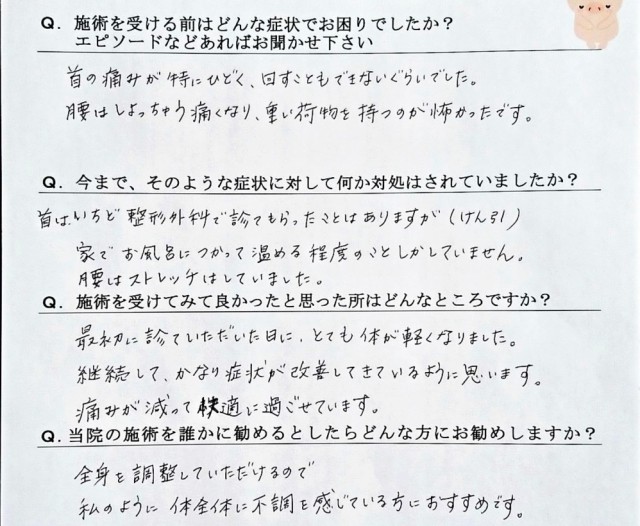 Q．施術を受ける前はどんな症状でお困りでしたか？
エピソードなどあればお聞かせ下さい
首の痛みが特にひどく、回すこともできないぐらいでした。
腰はしょっちゅう痛くなり、重い荷物を持つのが怖かったです。
Q．今まで、そのような症状に対して何か対処はされていましたか？
首はいちど整形外科で診てもらったことはありますが（けん引）
家でお風呂につかって温める程度のことしかしていません。
腰はストレッチはしていました。
Q．施術を受けてみて良かったと思った所はどんなところですか？
最初に診ていただいた日に、とても体が軽くなりました。
継続して、かなり症状が改善してきているように思います。
痛みが減って快適に過ごせています。
Q．当院の施術を誰かに勧めるとしたらどんな方にお勧めしますか？
全身を調整していただけるので
私のように体全体に不調を感じている方におすすめです。